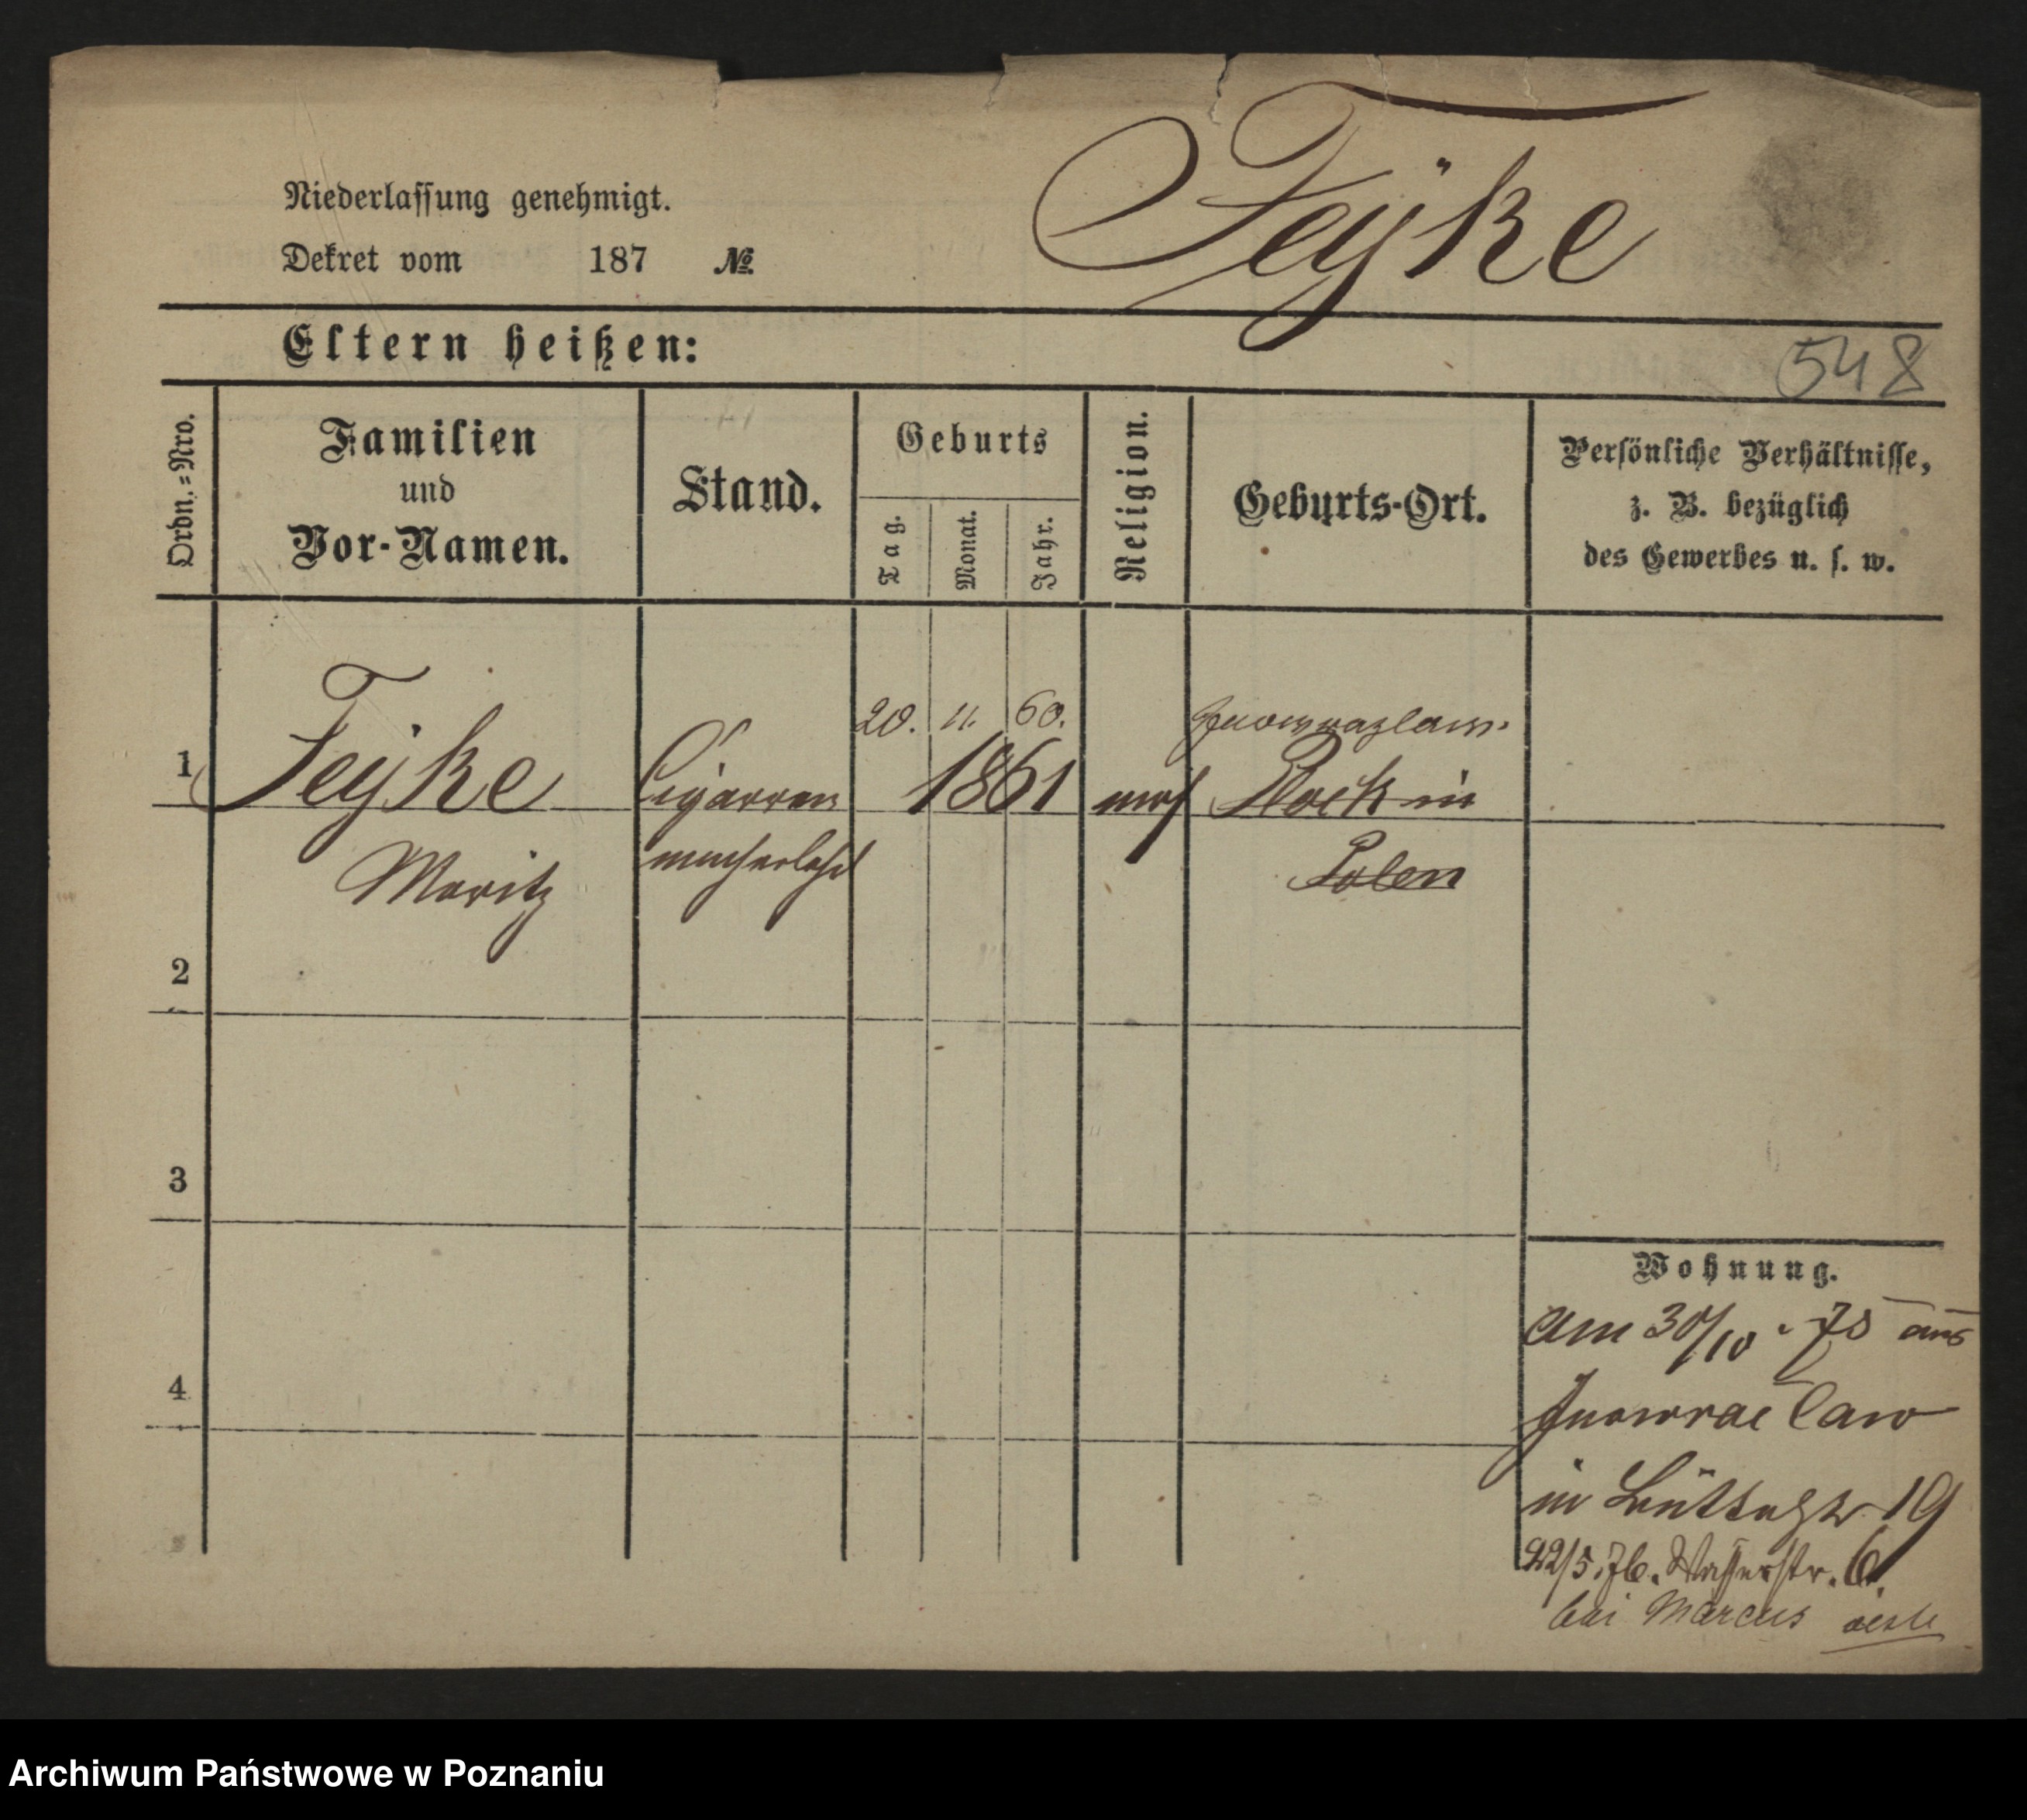 Niederlassung genehmigt.
Dekret vom 187 №
Feyke
Eltern heißen:
548
Ordn.=Nro.
Familien
und
Vor-Namen.
Stand.
Geburts
Tag.
Monat.
Jahr.
Religion.
Geburts-Ort.
Persönliche Verhältnisse,
z. B. bezüglich
des Gewerbes u. s. w.
20. 11. 60. Inowrazlaw.
1 Feyke Cigarren 1861 mos Plock in
Moritz macherlehrl Polen
2
3
4
Wohnung.
Am 30/10 75 aus
Inowraclaw
in Büttelstr 19
22/5. 76. Wasserstr. 6.
bei Marcus
Archiwum Państwowe w Poznaniu